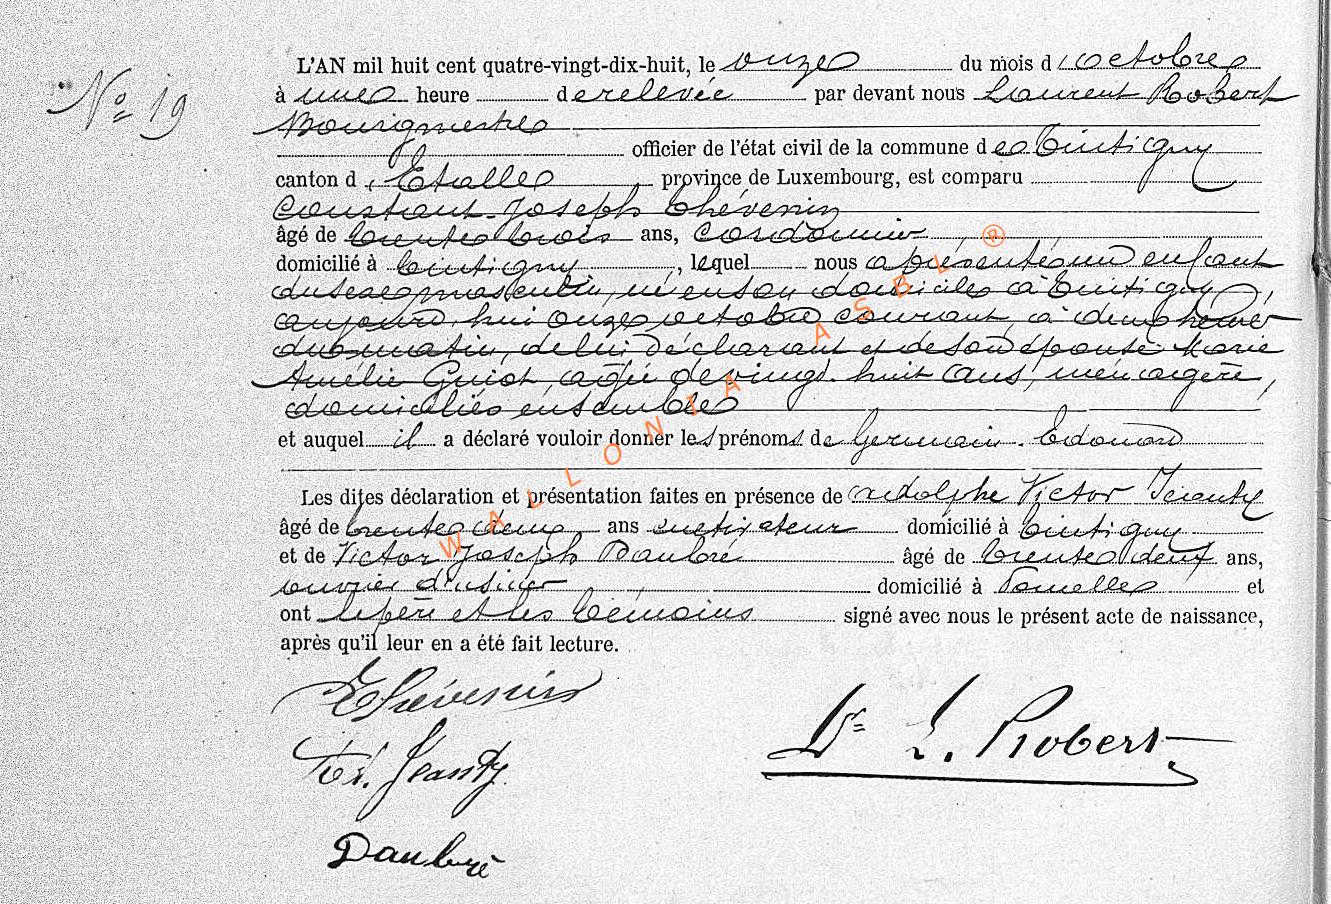 N° 19
L'AN mil huit cent quatre-vingt-dix-huit, le onze du mois d'octobre
à une heure de relevée par devant nous Laurent Robert
Bourgmestre
officier de l'état civil de la commune de Tintigny
canton d'Etalle province de Luxembourg, est comparu
Constant Joseph Thévenin
âgé de trente trois ans, cordonnier
domicilié à Tintigny, lequel nous a présenté un enfant
du sexe masculin, né en son domicile à Tintigny,
aujourd'hui onze octobre courant, à deux heures
du matin, de lui déclarant et de son épouse Marie
Amélie Guiot, agée de vingt-huit ans, ménagère,
domiciliés ensemble
et auquel il a déclaré vouloir donner les prénoms de Germain-Edouard
Les dites déclaration et présentation faites en présence de Adolphe Victor Jeanty
âgé de trente deux ans cultivateur domicilié à Tintigny
et de Victor Joseph Daubré âgé de trente deux ans,
ouvrier d'usine domicilié à et
ont le père et les témoins signé avec nous le présent acte de naissance,
après qu'il leur en a été fait lecture.
Thévenin
Jeanty
Daubré
Dr L. Robert
WALLONIA ASBL ®